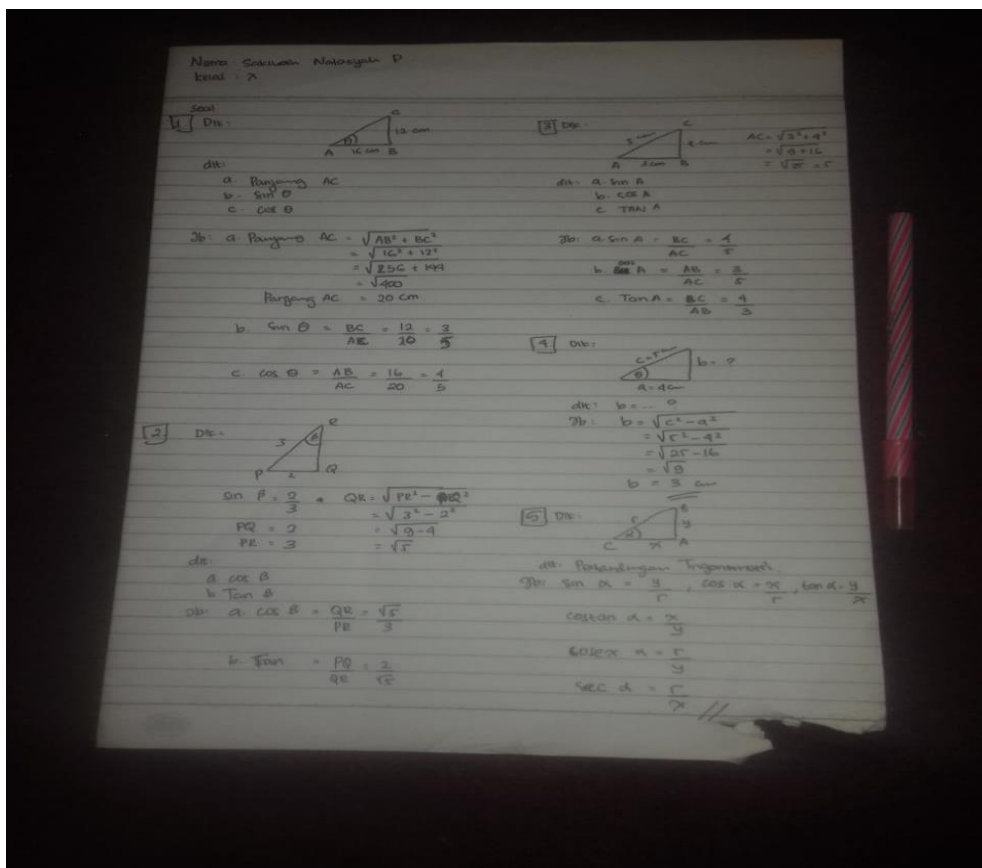 Nama : Sakwan Natasyah P
Kelas : X
Soal
1 Dik :
C
12 cm
θ
A 16 cm B
dit :
a. Panjang AC
b. Sin θ
c. cos θ
Jb : a. Panjang AC = √AB² + BC²
= √16² + 12²
= √256 + 144
= √400
Panjang AC = 20 cm
b. Sin θ = BC/AC = 12/20 = 3/5
c. cos θ = AB/AC = 16/20 = 4/5
2 Dik :
R
3 β
P 2 Q
sin β = 2/3 • QR = √PR² - PQ²
= √3² - 2²
PQ = 2 = √9 - 4
PR = 3 = √5
dit :
a cos β
b Tan β
Jb : a. cos β = QR/PR = √5/3
b. Tan = PQ/QR = 2/√5
3 Dik :
C
5 cm 4 cm
A 3 cm B
AC = √3² + 4²
= √9 + 16
= √25 = 5
dit : a. sin A
b. cos A
c. TAN A
Jb : a. sin A = BC/AC = 4/5
b. cos A = AB/AC = 3/5
c. Tan A = BC/AB = 4/3
4 Dik :
c = 5 cm b = ?
θ
a = 4 cm
dit : b = ... ?
Jb : b = √c² - a²
= √5² - 4²
= √25 - 16
= √9
b = 3 cm
5 Dik :
B
r y
α
C x A
dit : Perbandingan Trigonometri
Jb : sin α = y/r , cos α = x/r , tan α = y/x
costan α = x/y
cosex α = r/y
sec α = r/x //